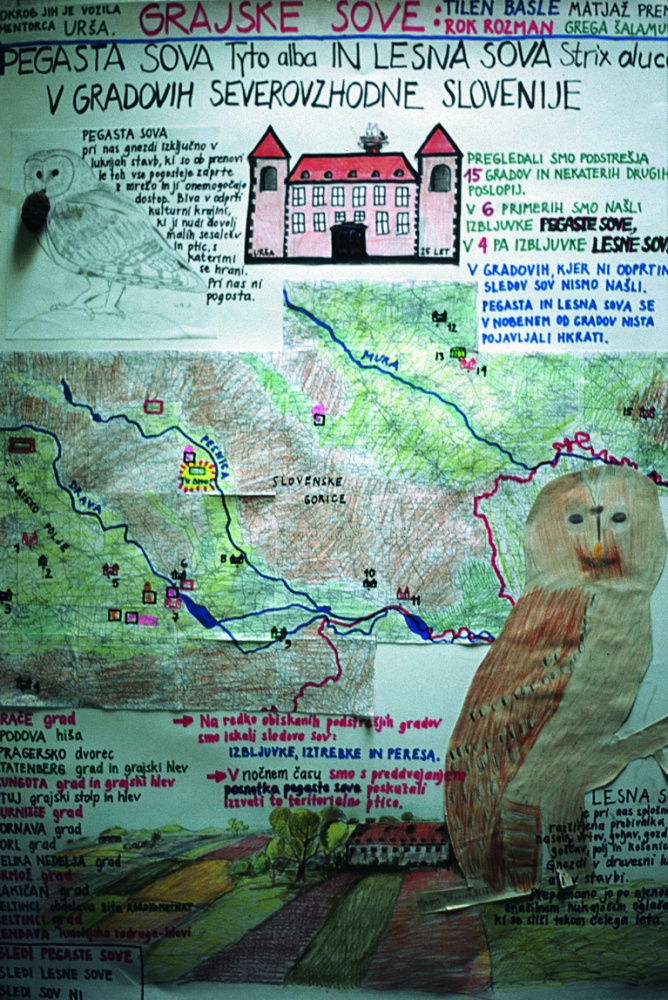 OKROG JIH JE VOZILA
MENTORCA URŠA.
GRAJSKE SOVE:
TILEN BASLE MATJAŽ PREM
ROK ROZMAN GREGA ŠALAMU
PEGASTA SOVA Tyto alba IN LESNA SOVA Strix aluco
V GRADOVIH SEVEROVZHODNE SLOVENIJE
PEGASTA SOVA
pri nas gnezdi izključno v
luknjah stavb, ki so ob prenovi
le teh vse pogosteje zaprte
z mrežo in ji onemogočajo
dostop. Biva v odprti
kulturni krajini,
ki ji nudi dovolj
malih sesalcev
in ptic, s
katerimi
se hrani.
Pri nas ni
pogosta.
URŠA
25 LET
PREGLEDALI SMO PODSTREŠJA
15 GRADOV IN NEKATERIH DRUGIH
POSLOPIJ.
V 6 PRIMERIH SMO NAŠLI
IZBLJUVKE PEGASTE SOVE,
V 4 PA IZBLJUVKE LESNE SOV
V GRADOVIH, KJER NI ODPRTIN
SLEDOV SOV NISMO NAŠLI.
PEGASTA IN LESNA SOVA SE
V NOBENEM OD GRADOV NISTA
POJAVLJALI HKRATI.
12
MURA
13
14
15
PESNICA
SLOVENSKE
GORICE
DRAVA
DRAVSKO POLJE
1
2
3
5
6
7
8
9
10
11
RAČE grad
PODOVA hiša
PRAGERSKO dvorec
TATENBERG grad in grajski hlev
UNGOTA grad in grajski hlev
TUJ grajski stolp in hlev
URNIŠČE grad
ORNAVA grad
ORL grad
ELIKA NEDELJA grad
RMOŽ grad
AKIČAN grad
ELTINCI
ELTINCI grad
ENDAVA
Na redko obiskanih podstrešjih gradov
smo iskali sledove sov:
IZBLJUVKE, IZTREBKE IN PERESA.
V nočnem času smo s predvajanjem
posnetka pegaste sove poskušali
izzvati to teritorialno ptico.
LESNA S
je pri nas splošno
razširjena prebivalka
Gnezdi v dravesni lu
ali v stavbi.
Prepoznamo jo po njenem
značilnem hukajočem oglaša
ki se sliši tekom celega leta.
SLEDI PEGASTE SOVE
SLEDI LESNE SOVE
SLEDI SOV NI